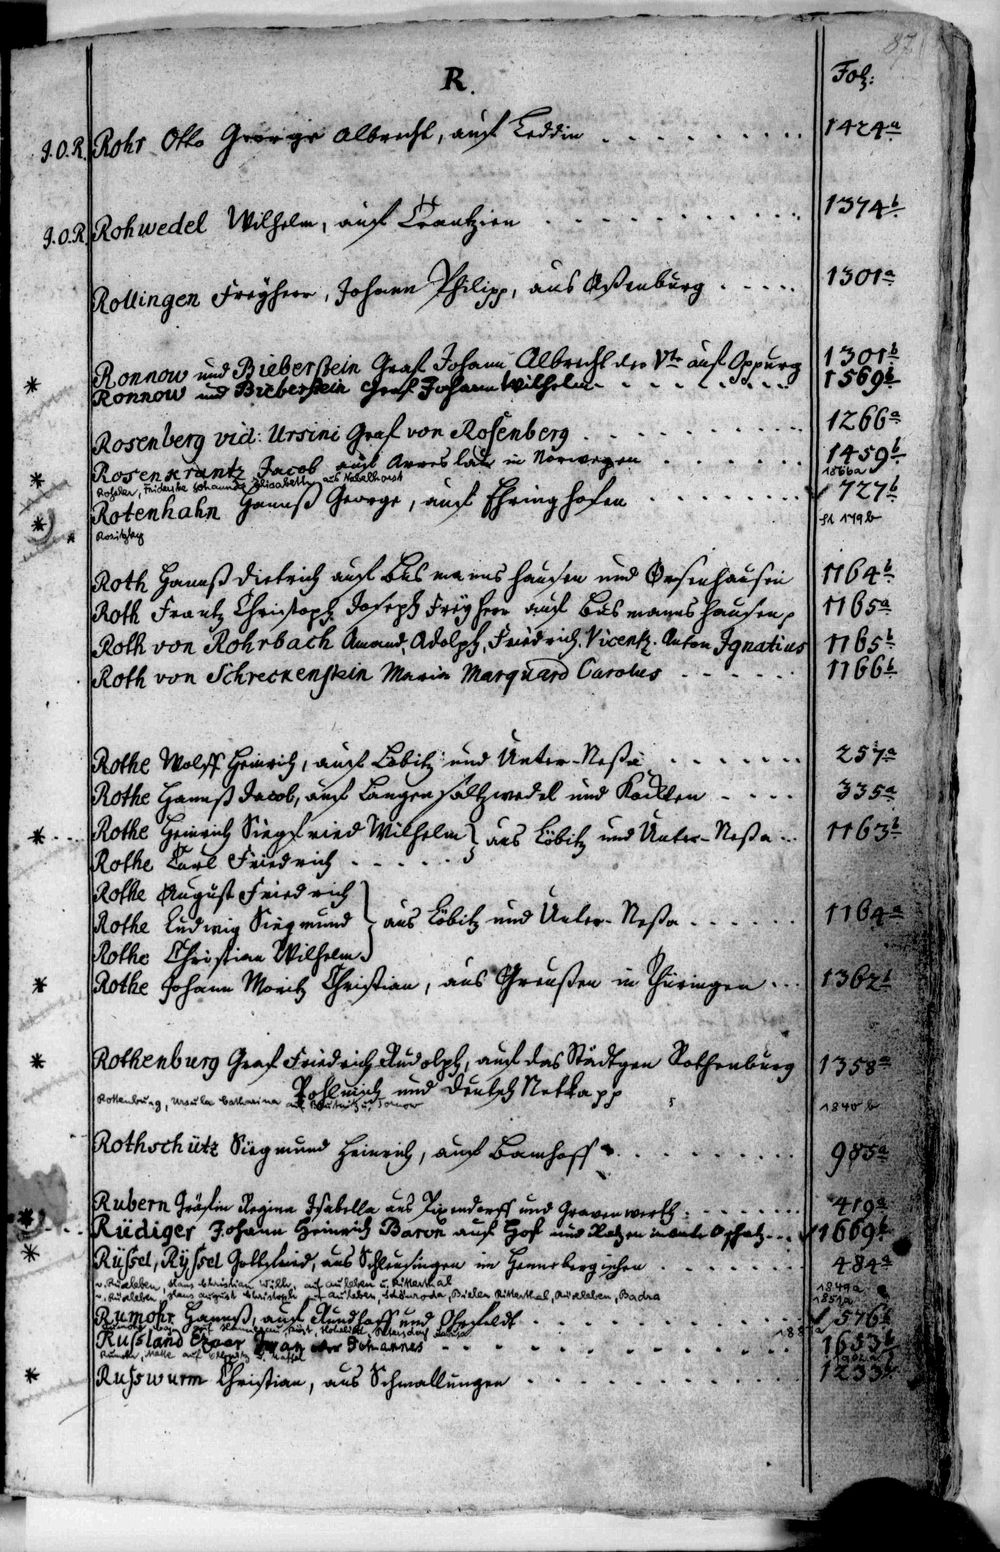 87
R.
Fol:
J.O.R. Rohr Otto George Albrecht, auf Leddin 1424a
J.O.R. Rohwedel Wilhelm, auf Crantzien 1374b
Rollingen Freyherr, Johann Philipp, aus Aßenburg 1301a
Ronnow und Bieberstein Graf Johann Albrecht der Vte auf Oppurg 1301b
* Ronnow und Bieberstein Graf Johann Wilhelm 1569b
Rosenberg vid: Ursini Graf von Rosenberg 1266a
* Rosenkrantz Jacob auf in Norwegen 1459b
Friderike Johanna Elisabeth aus 1566a
* Rotenhahn Hannß George, auf Ehringhofen 727b
149b
Roth Hannß Dietrich auf Busmannshausen und Orsenhausen 1164b
Roth Frantz Christoph Joseph Freyherr auf Busmannshausen 1165a
Roth von Rohrbach Amand. Adolph. Friedrich. Vicentz. Anton Ignatius 1165b
Roth von Schreckenstein Maria Marquard Carolus 1166b
Rothe Wolff Heinrich, auf Löbitz und Unter-Neßa 257a
Rothe Hannß Jacob, auf Langen saltzwedel und 335a
* Rothe Heinrich Siegfried Wilhelm } aus Löbitz und Unter-Neßa 1163b
Rothe Carl Friedrich
Rothe August Friedrich
Rothe Ludwig Siegmund } aus Löbitz und Unter-Neßa 1164a
Rothe Christian Wilhelm
* Rothe Johann Moritz Christian, aus Greußen in Thüringen 1362b
* Rothenburg Graf Friedrich Rudolph, auf das Städtgen Rothenburg 1358a
Pohlnisch und Deutsch Netkapp
Rottenburg, Ursula Catharina 1840b
Rothschütz Siegmund Heinrich, auf Bamhoff 985a
Rubern Gräfin Regina Isabella aus und Gravenwerth 419a
* Rüdiger Johann Heinrich Baron auf Hof und 1669b
* Rüssel, Ryssel Gottfried, aus Schleusingen im Hennebergischen 484a
v. Ruxleben, Hans Christian Wilh. auf Auleben u. Ritterthal 1849a
v. Ruxleben, Hans August Christoph auf Auleben, Bielen Ritterthal, Rüxleben, Badra 1851a
Rumohr Hannß, auf Rundhoff und Ohrfeldt 576b
Russland Czaar Iwan oder Johannes 1653b
* Russwurm Christian, aus Schwallungen 1233b